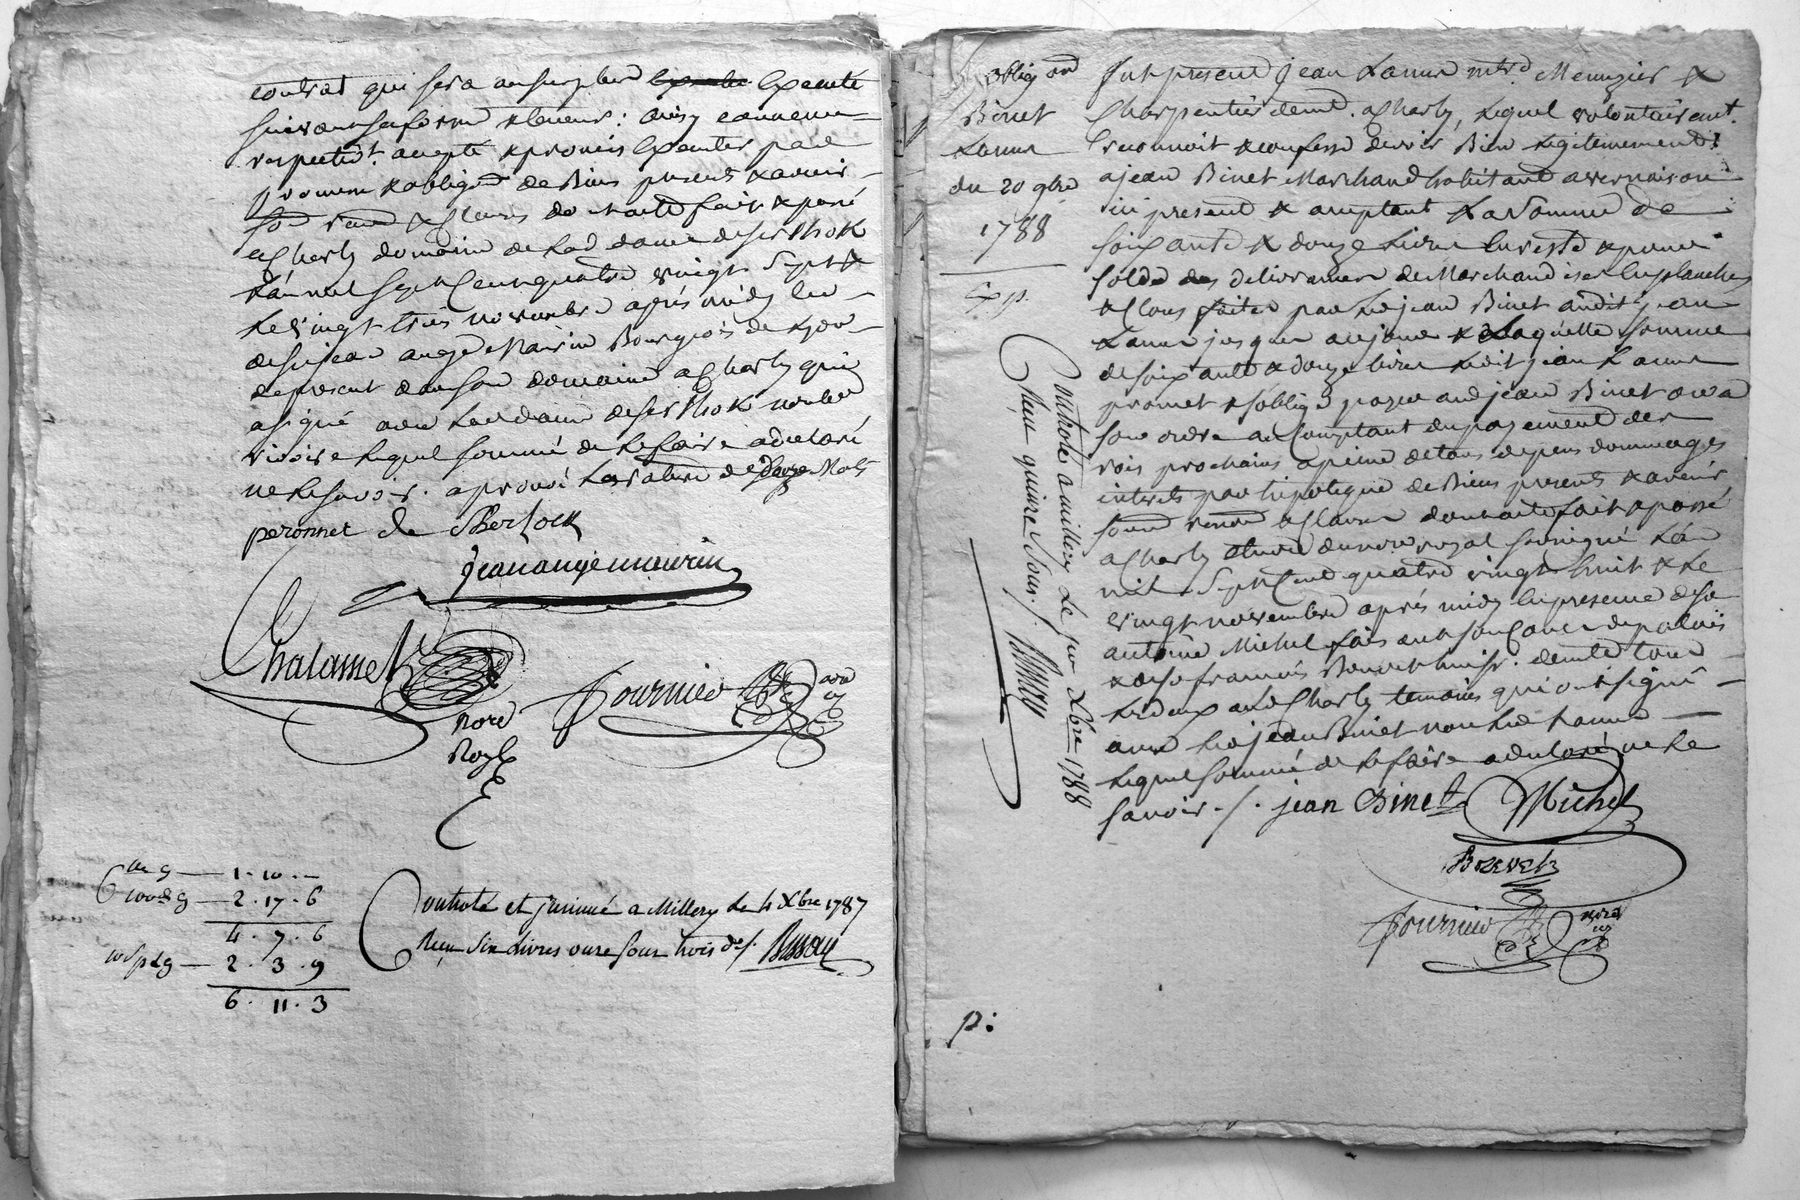 contrat qui sera au surplus executé
suivant sa forme & teneur: ainsy convenu
respectivt. accepté & promis executer par
promesse & obligeant de Biens presents & avenir
soud renon & clauses dont acte fait & passé
a Charly domaine de lad dame de Serthok
l'an mil sept cent quatre vingt sept &
le vingt trois novembre après midy en
de sr jean ange Maurin Bourgeois de Lyon
de present dans son domaine a Charly qui
a signé avec lad dame de Sertholk non led
lequel sommé de le faire a declaré
ne le savoir. aprouvé la rature de Mots
peronnet de Bertholk
jean ange maurin
Chalamel
nore
Royl
Fournier
1 · 10 · —
2 · 17 · 6
4 · 7 · 6
2 · 3 · 9
6 · 11 · 3
Controlé et insinué a Millery le 4 Xbre 1787
Reçu six livres onze sous trois ds/.
oblig on
Binet
Lanur
du 20 9bre
1788
Exp.
Controlé a millery le per Xbre 1788
Reçu quinze sous./.
Fut present jean Lanur mtre Menuzier &
Charpentier demt. a Charly, lequel volontairemt.
reconnoit & confesse devoir Bien legitimement
a jean Binet Marchand habitant a vernaison
ici present & acceptant La Somme de
soixante & douze Livres en reste & pour
solde des delivrances de Marchandises en planches
& Clous faites par led jean Binet audit jean
Lanur jusques au jour & Laquelle somme
de soixante & douze livres ledit jean Lanur
promet & s'oblige payer aud jean Binet ou a
son ordre au Comptant du payement des
rois prochains a peine de tous depens dommages
interets par hipoteque de Biens presents & avenir
soud renon & Clauses dont acte fait & passé
a Charly etude du nore royal soussigné L'an
mil Sept Cent quatre vingt huit & Le
vingt novembre après midy en presence de sr
antoine Michel
& de sr françois huissr. demt tous
Les deux aud Charly temoins qui ont signé
avec led jean Binet non led Lanur
lequel sommé de le faire a declaré ne Le
savoir./. jean Binet Michel
Fournier nore
p: